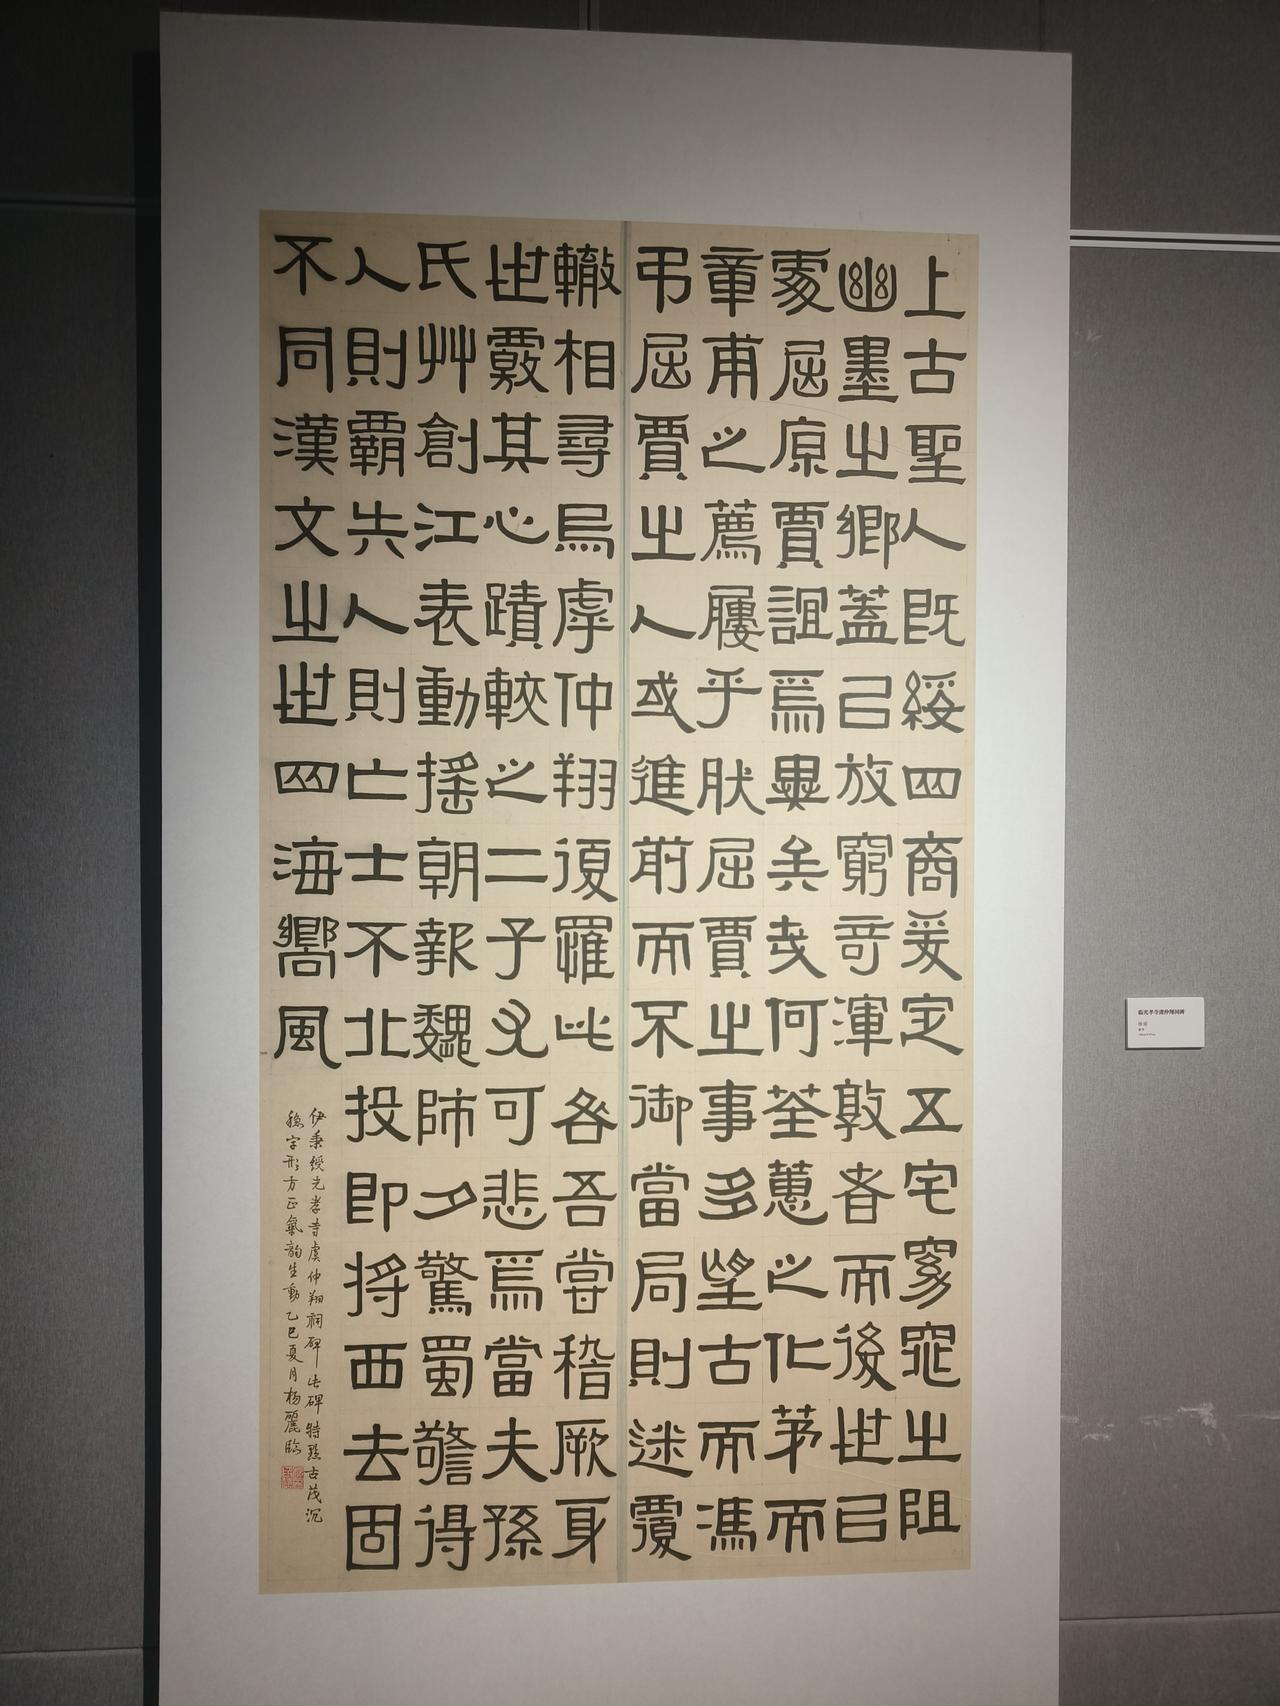 上古聖人既綏四裔爰定五宅窮窕之阻
幽墨之鄉蓋㠯放窮奇渾敦者而後世㠯
處屈原賈誼焉異矣哉何荃蕙之化茅而
章甫之薦屨乎狀屈賈之事多望古而馮
弔屈賈之人或進前而不御當局則迷覆
轍相尋烏虖仲翔復罹此咎吾嘗稽厥身
世覈其心蹟較之二子尤可悲焉當夫孫
氏艸創江表動搖朝報魏師夕驚蜀警得
人則霸失人則亡士不北投即將西去固
不同漢文之世四海嚮風
伊秉綬光孝寺虞仲翔祠碑此碑特點古茂沉
穩字形方正氣韵生動乙巳夏月楊麗臨
臨光孝寺虞仲翔祠碑